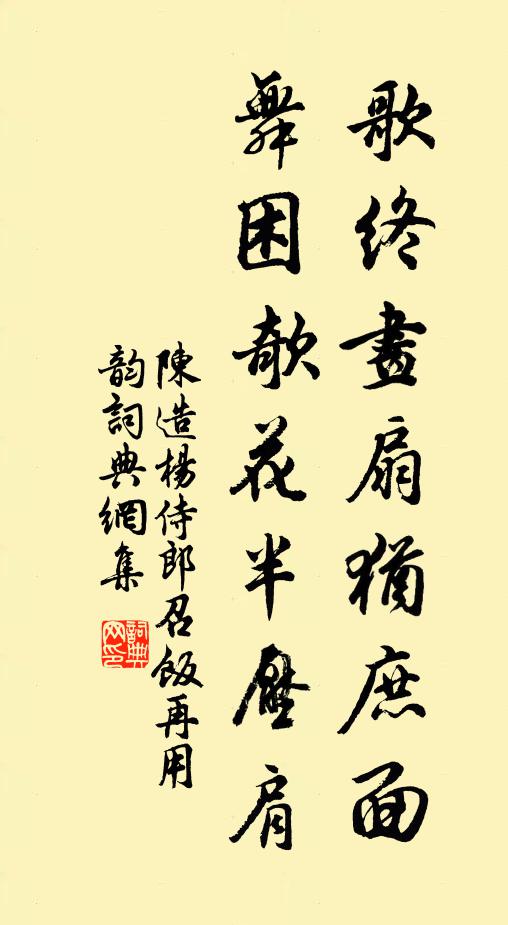 歌終畫扇猶庶面
舞困欹花半壓肩
陳造楊侍郎召飯再用
韵詞典網集
詞典
网印